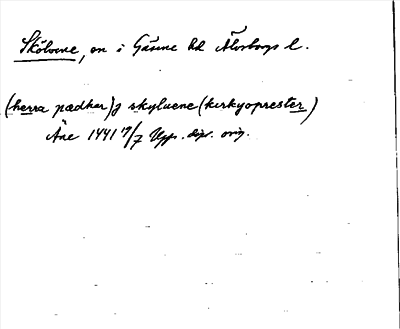 Skölvene, sn i Gäsene hd Älvsborgs l.
(herra pædhar) j skyluene (kirkyoprester)
Åne 1441 7/7 Upps. dipl. orig.